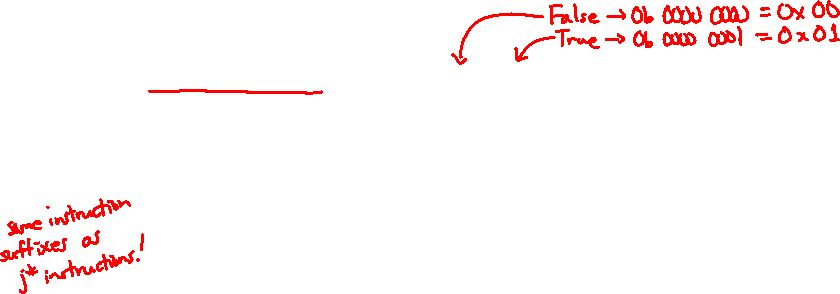 False → 0b 0000 0000 = 0x 00
True → 0b 0000 0001 = 0x 01
same instruction
suffixes as
j* instructions!